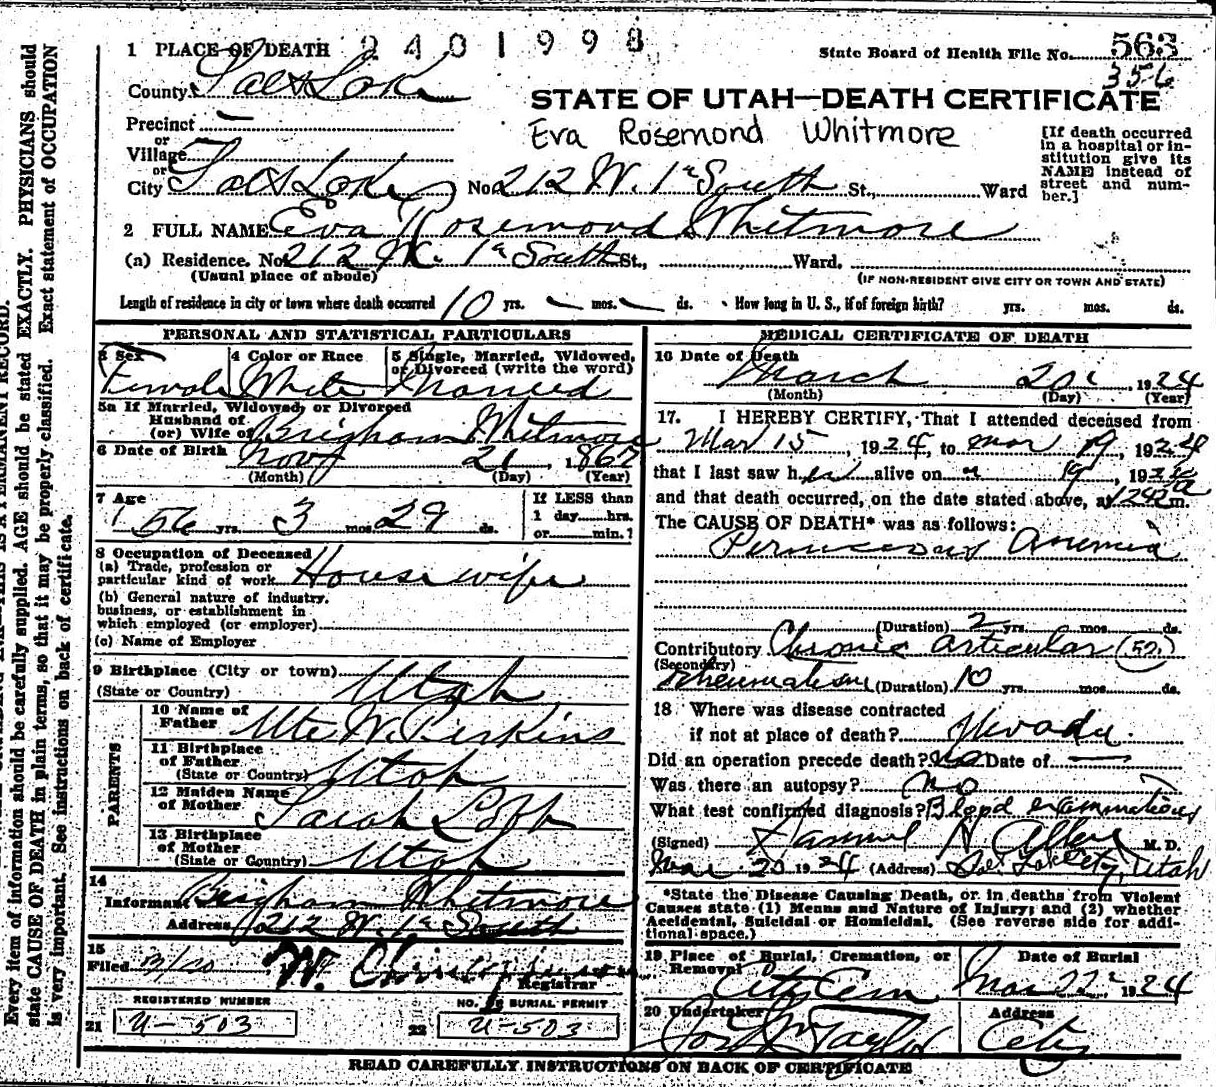 1 PLACE OF DEATH 2401998 State Board of Health File No. 563
356
County Salt Lake
STATE OF UTAH—DEATH CERTIFICATE
Precinct —
Eva Rosemond Whitmore
[If death occurred in a hospital or institution give its NAME instead of street and number.]
or
Village
or
City Salt Lake No. 212 W. 1st South St., Ward
2 FULL NAME Eva Rosemond Whitmore
(a) Residence. No. 212 W. 1st South St., Ward.
(Usual place of abode) (IF NON-RESIDENT GIVE CITY OR TOWN AND STATE)
Length of residence in city or town where death occurred 10 yrs. — mos. — ds. How long in U. S., if of foreign birth? yrs. mos. ds.
PERSONAL AND STATISTICAL PARTICULARS
3 Sex 4 Color or Race 5 Single, Married, Widowed,
or Divorced (write the word)
Female White Married
5a If Married, Widowed, or Divorced
Husband of
(or) Wife of Brigham Whitmore
6 Date of Birth Nov 21, 1867
(Month) (Day) (Year)
7 Age If LESS than
56 yrs. 3 mos. 29 ds. 1 day......hrs.
or......min.?
8 Occupation of Deceased
(a) Trade, profession or
particular kind of work Housewife
(b) General nature of industry.
business, or establishment in
which employed (or employer)
(c) Name of Employer
9 Birthplace (City or town)
(State or Country) Utah
PARENTS
10 Name of
Father Ute W. Perkins
11 Birthplace
of Father
(State or Country) Utah
12 Maiden Name
of Mother Sarah
13 Birthplace
of Mother
(State or Country) Utah
14
Informant Brigham Whitmore
Address 212 W. 1st South
15
Filed 3/20 W.
Registrar
REGISTERED NUMBER NO. OF BURIAL PERMIT
21 U-503 22 U-503
MEDICAL CERTIFICATE OF DEATH
16 Date of Death
March 20, 1924
(Month) (Day) (Year)
17. I HEREBY CERTIFY, That I attended deceased from
Mar 15, 1924, to Mar 19, 1924
that I last saw her alive on " 19, 1924
and that death occurred, on the date stated above, at m.
The CAUSE OF DEATH* was as follows:
Pernicious Anemia
(Duration) 2 yrs. mos. ds.
Contributory Chronic articular
(Secondary)
Rheumatism (Duration) 10 yrs. mos. ds.
18 Where was disease contracted
if not at place of death? Nevada.
Did an operation precede death? no Date of —
Was there an autopsy? no
What test confirmed diagnosis? Blood examinations
(Signed) Samuel H. Allen M. D.
Mar 20 1924 (Address) Salt Lake City, Utah
*State the Disease Causing Death, or in deaths from Violent
Causes state (1) Means and Nature of Injury; and (2) whether
Accidental, Suicidal or Homicidal. (See reverse side for addi-
tional space.)
19 Place of Burial, Cremation, or Date of Burial
Removal
City Cem Mar 22, 1924
20 Undertaker Address
Taylor City
READ CAREFULLY INSTRUCTIONS ON BACK OF CERTIFICATE
Every item of information should be carefully supplied. AGE should be stated EXACTLY. PHYSICIANS should
state CAUSE OF DEATH in plain terms, so that it may be properly classified. Exact statement of OCCUPATION
is very important. See instructions on back of certificate.